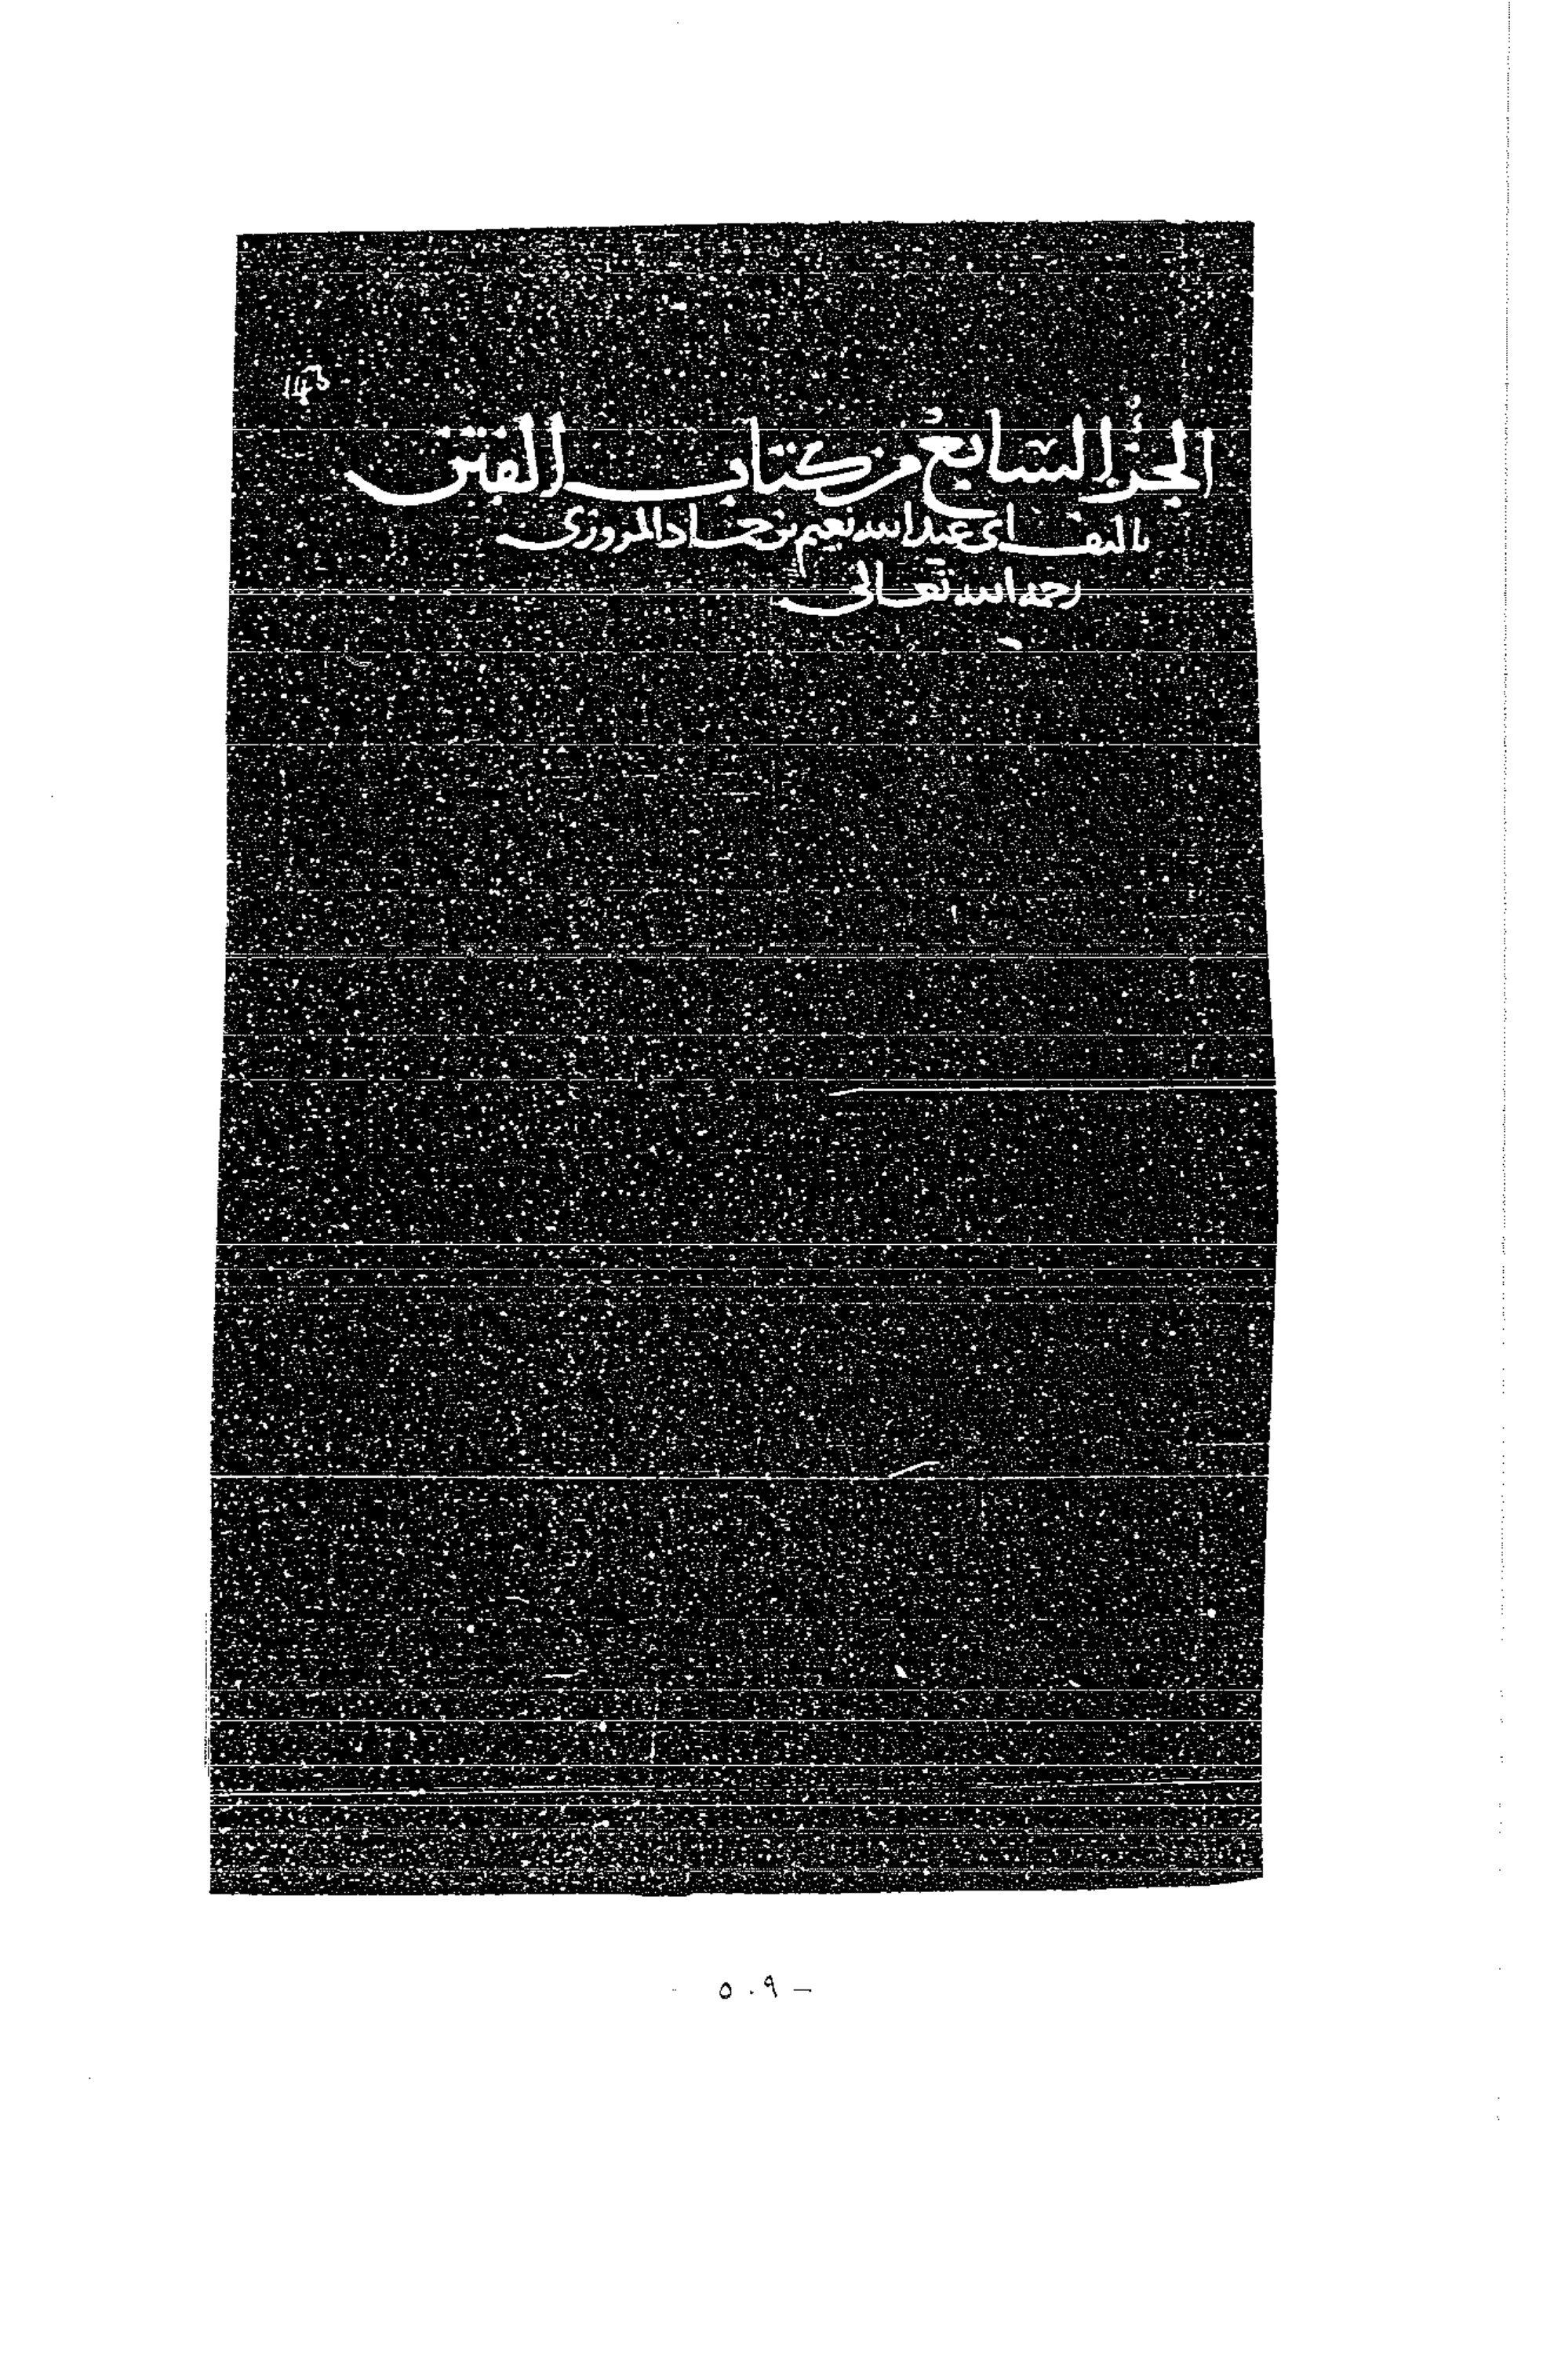 الجزُّ السابعُ من كتاب الفتن
تاليف ابى عبد الله نعيم بن حماد المروزى
رحمه الله تعالى
٥٠٩ –